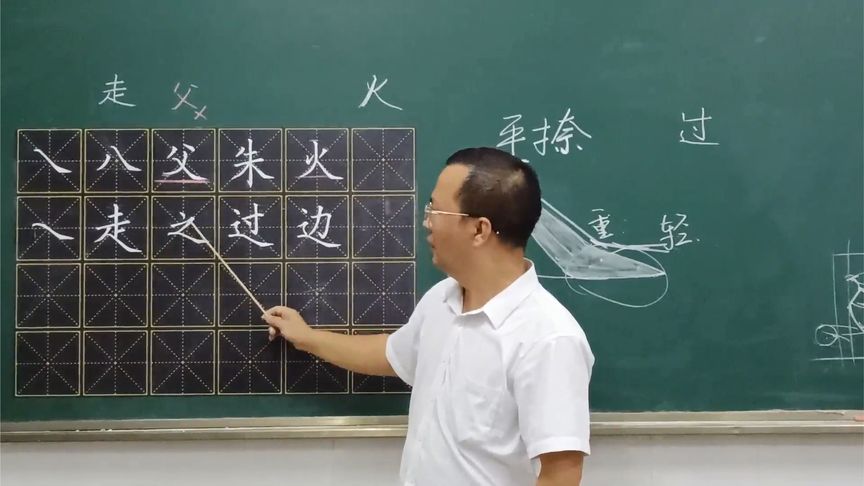 走 父 火
㇏ 八 父 朱 火
㇏ 走 之 过 边
平捺 过
重 轻